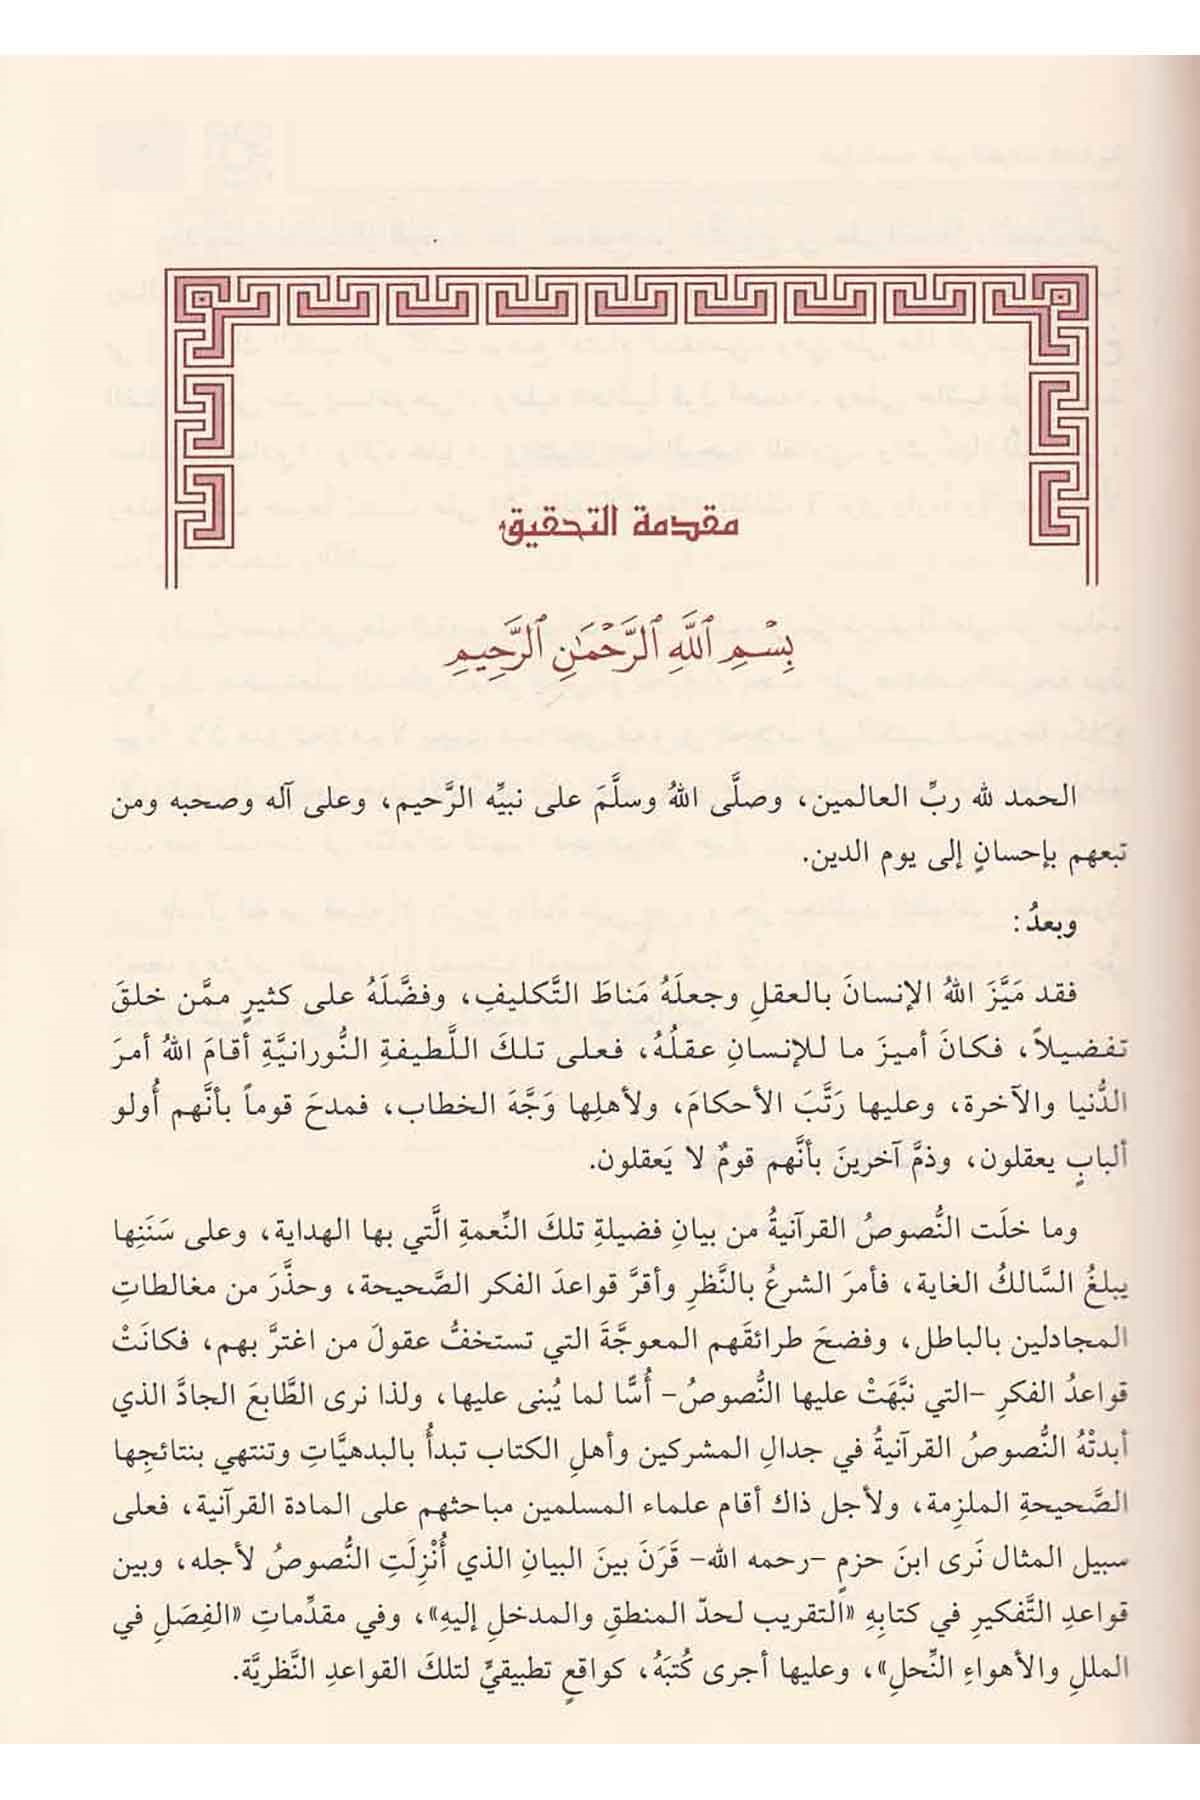 مقدمة التحقيق
بِسْمِ ٱللَّهِ ٱلرَّحْمَٰنِ ٱلرَّحِيمِ
الحمد لله ربِّ العالمين، وصلَّى اللهُ وسلَّمَ على نبيِّه الرَّحيم، وعلى آله وصحبه ومن
تبعهم بإحسانٍ إلى يوم الدين.
وبعدُ:
فقد مَيَّزَ اللهُ الإنسانَ بالعقلِ وجعلَهُ مَناطَ التَّكليفِ، وفضَّلَهُ على كثيرٍ ممَّن خلقَ
تفضيلاً، فكانَ أميزَ ما للإنسانِ عقلُهُ، فعلى تلكَ اللَّطيفةِ النُّورانيَّةِ أقامَ اللهُ أمرَ
الدُّنيا والآخرة، وعليها رَتَّبَ الأحكامَ، ولأهلِها وَجَّهَ الخطاب، فمدحَ قوماً بأنَّهم أُولو
ألبابٍ يعقلون، وذمَّ آخرينَ بأنَّهم قومٌ لا يَعقلون.
وما خلَت النُّصوصُ القرآنيةُ من بيانِ فضيلةِ تلكَ النِّعمةِ الَّتي بها الهداية، وعلى سَنَنِها
يبلغُ السَّالكُ الغاية، فأمرَ الشرعُ بالنَّظرِ وأقرَّ قواعدَ الفكر الصَّحيحة، وحذَّرَ من مغالطاتِ
المجادلين بالباطل، وفضحَ طرائقَهم المعوجَّةَ التي تستخفُّ عقولَ من اغترَّ بهم، فكانَتْ
قواعدُ الفكرِ -التي نبَّهَتْ عليها النُّصوصُ- أُسًّا لما يُبنى عليها، ولذا نرى الطَّابعَ الجادَّ الذي
أبدتْهُ النُّصوصُ القرآنيةُ في جدالِ المشركين وأهلِ الكتاب تبدأُ بالبدهيَّاتِ وتنتهي بنتائجِها
الصَّحيحةِ الملزِمة، ولأجل ذاك أقام علماء المسلمين مباحثهم على المادة القرآنية، فعلى
سبيل المثال نَرى ابنَ حزمٍ -رحمه الله- قَرَنَ بينَ البيانِ الذي أُنْزِلَتِ النُّصوصُ لأجله، وبين
قواعدِ التَّفكيرِ في كتابِهِ «التقريب لحدّ المنطقِ والمدخلِ إليهِ»، وفي مقدِّماتِ «الفِصَلِ في
المللِ والأهواءِ النِّحلِ»، وعليها أجرى كُتبَهُ، كواقعٍ تطبيقيٍّ لتلكَ القواعدِ النَّظريَّة.